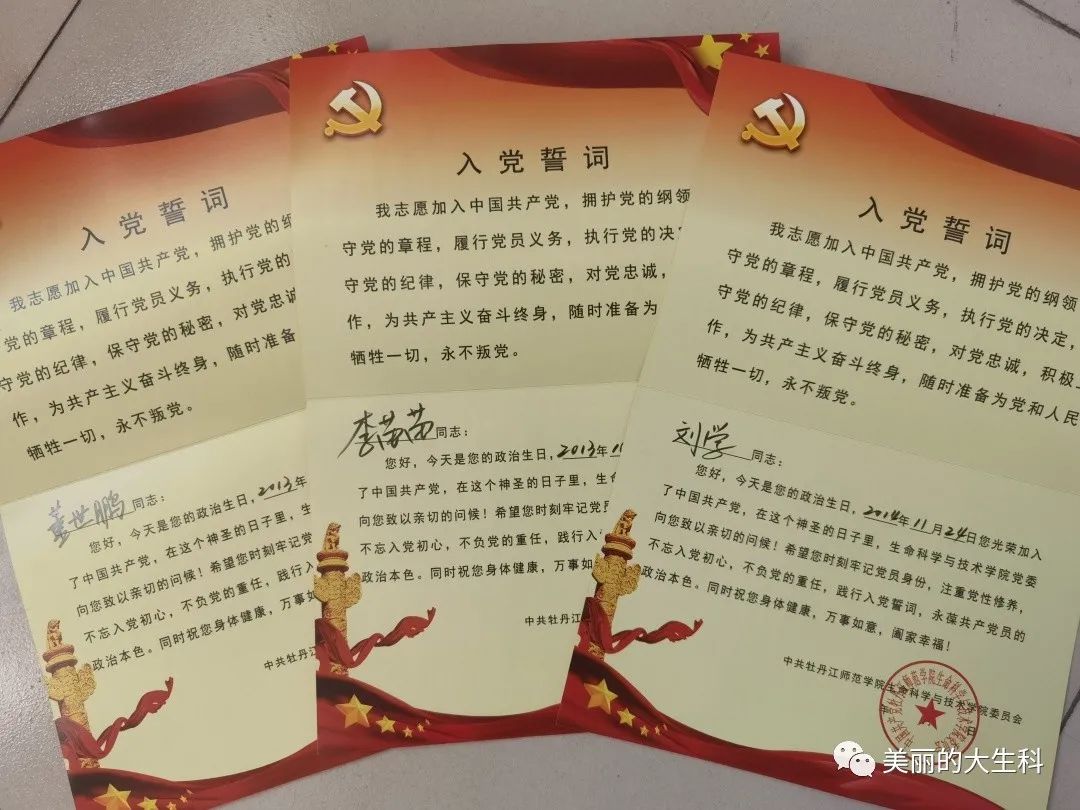 入党誓词
我志愿加入中国共产党，拥护党的纲
党的章程，履行党员义务，执行党的
守党的纪律，保守党的秘密，对党忠诚
作，为共产主义奋斗终身，随时准备
牺牲一切，永不叛党。
世鹏同志：
您好，今天是您的政治生日，2013年
了中国共产党，在这个神圣的日子里，生
向您致以亲切的问候！希望您时刻牢记
不忘入党初心，不负党的重任，践行入
政治本色。同时祝您身体健康，万事如
中共牡丹江
入党誓词
我志愿加入中国共产党，拥护党的纲领
守党的章程，履行党员义务，执行党的决定
守党的纪律，保守党的秘密，对党忠诚，
作，为共产主义奋斗终身，随时准备为
牺牲一切，永不叛党。
李苗苗同志：
您好，今天是您的政治生日，2013年
了中国共产党，在这个神圣的日子里，生
向您致以亲切的问候！希望您时刻牢记党
不忘入党初心，不负党的重任，践行入
政治本色。同时祝您身体健康，万事如
中共牡丹江
入党誓词
我志愿加入中国共产党，拥护党的纲领
守党的章程，履行党员义务，执行党的决定，
守党的纪律，保守党的秘密，对党忠诚，积极
作，为共产主义奋斗终身，随时准备为党和人民
牺牲一切，永不叛党。
刘学同志：
您好，今天是您的政治生日，2014年11月24日您光荣加入
了中国共产党，在这个神圣的日子里，生命科学与技术学院党委
向您致以亲切的问候！希望您时刻牢记党员身份，注重党性修养，
不忘入党初心，不负党的重任，践行入党誓词，永葆共产党员的
政治本色。同时祝您身体健康，万事如意，阖家幸福！
中共牡丹江师范学院生命科学与技术学院委员会
美丽的大生科